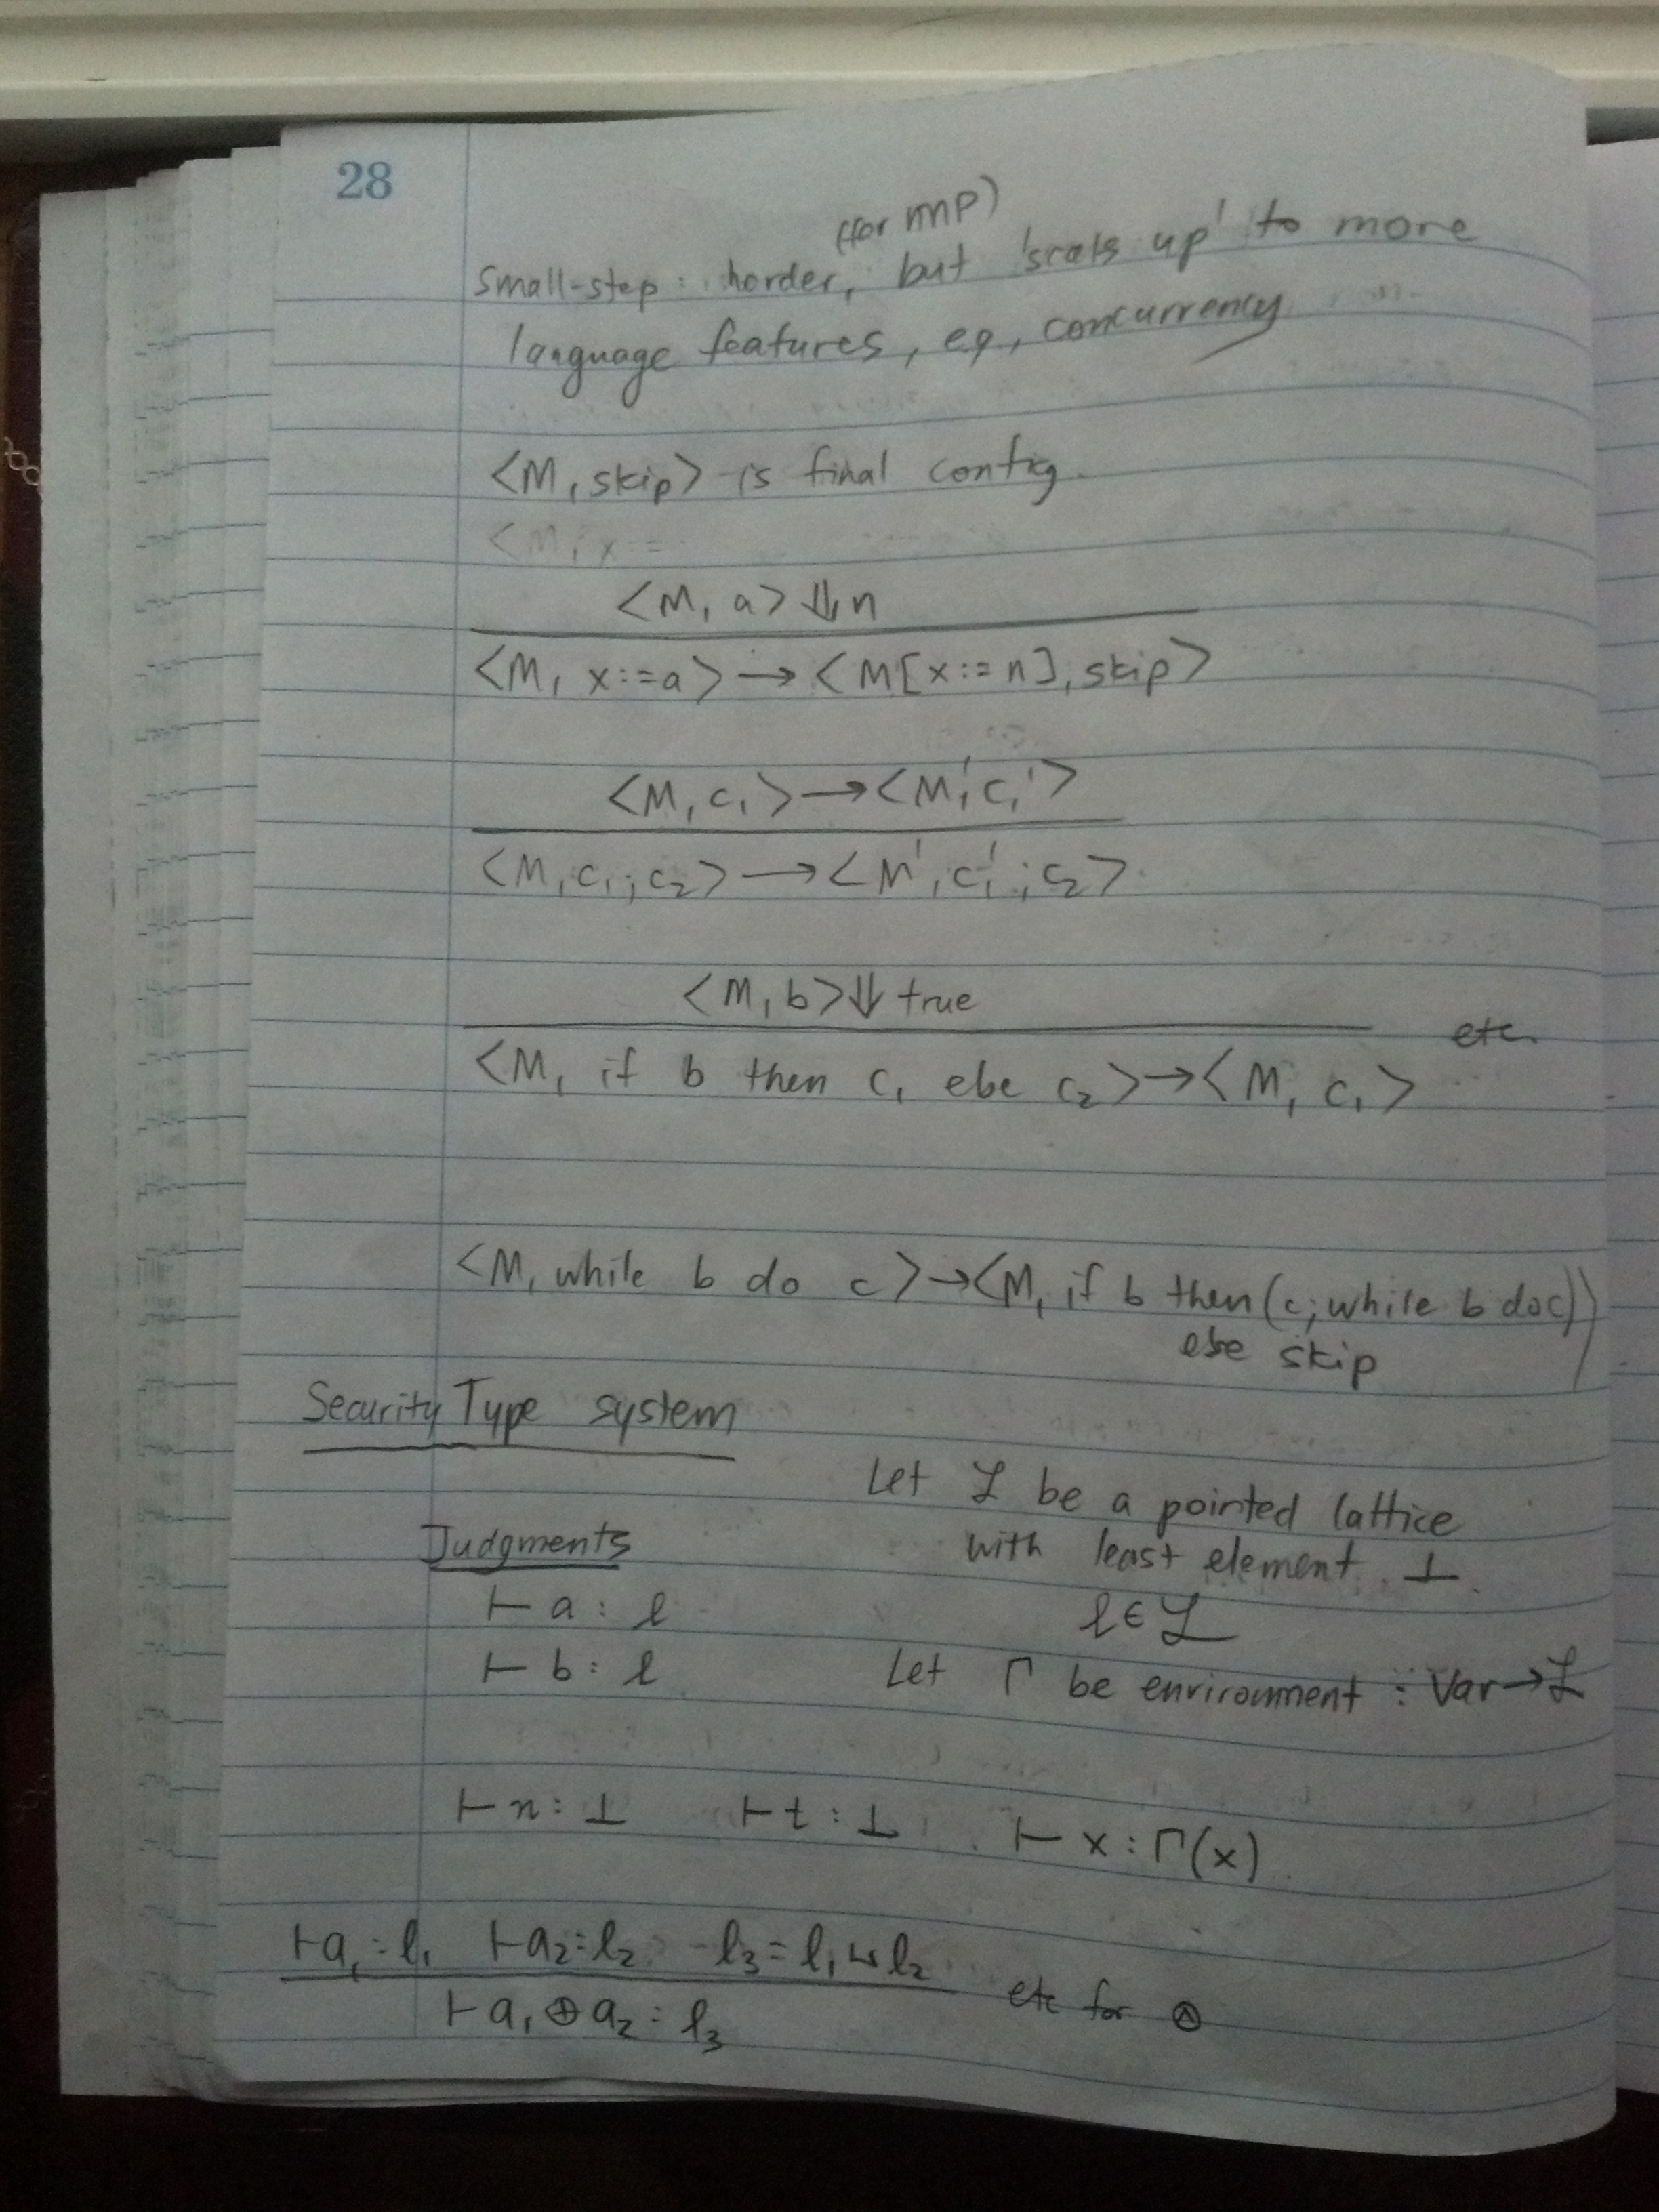 28
(for IMP)
small-step: harder, but 'scales up' to more
language features, eg, concurrency
<M, skip> is final config.
<M, x :=
<M, a> ⇓ n
<M, x:=a> → <M[x:=n], skip>
<M, c₁> → <M', c₁'>
<M, c₁; c₂> → <M', c₁'; c₂>
<M, b> ⇓ true
etc.
<M, if b then c₁ else c₂> → <M, c₁>
<M, while b do c> → <M, if b then (c; while b do c)
else skip>
Security Type system
Let ℒ be a pointed lattice
Judgments
with least element ⊥.
⊢ a : ℓ
ℓ ∈ ℒ
⊢ b : ℓ
Let Γ be environment : Var → ℒ
⊢ n : ⊥ ⊢ t : ⊥ ⊢ x : Γ(x)
⊢ a₁ : ℓ₁ ⊢ a₂ : ℓ₂ ℓ₃ = ℓ₁ ⊔ ℓ₂
⊢ a₁ ⊕ a₂ : ℓ₃ etc for